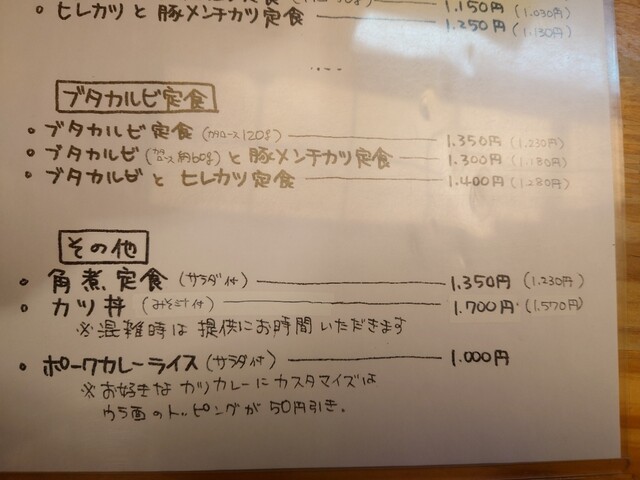 1.150円 (1.030円)
・ヒレカツと豚メンチカツ定食 1.250円 (1.130円)
ブタカルビ定食
・ブタカルビ定食 (肩ロース120g) 1.350円 (1.230円)
・ブタカルビ (肩ロース約60g) と豚メンチカツ定食 1.300円 (1.180円)
・ブタカルビとヒレカツ定食 1.400円 (1.280円)
その他
・角煮定食 (サラダ付) 1.350円 (1.230円)
・カツ丼 (みそ汁付) 1.700円 (1.570円)
※混雑時は提供にお時間いただきます
・ポークカレーライス (サラダ付) 1.000円
※お好きなカツカレーにカスタマイズは
ウラ面のトッピングが50円引き.